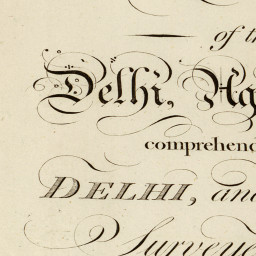 of th
Delhi, Ag
comprehend
DELHI, and
Surveye